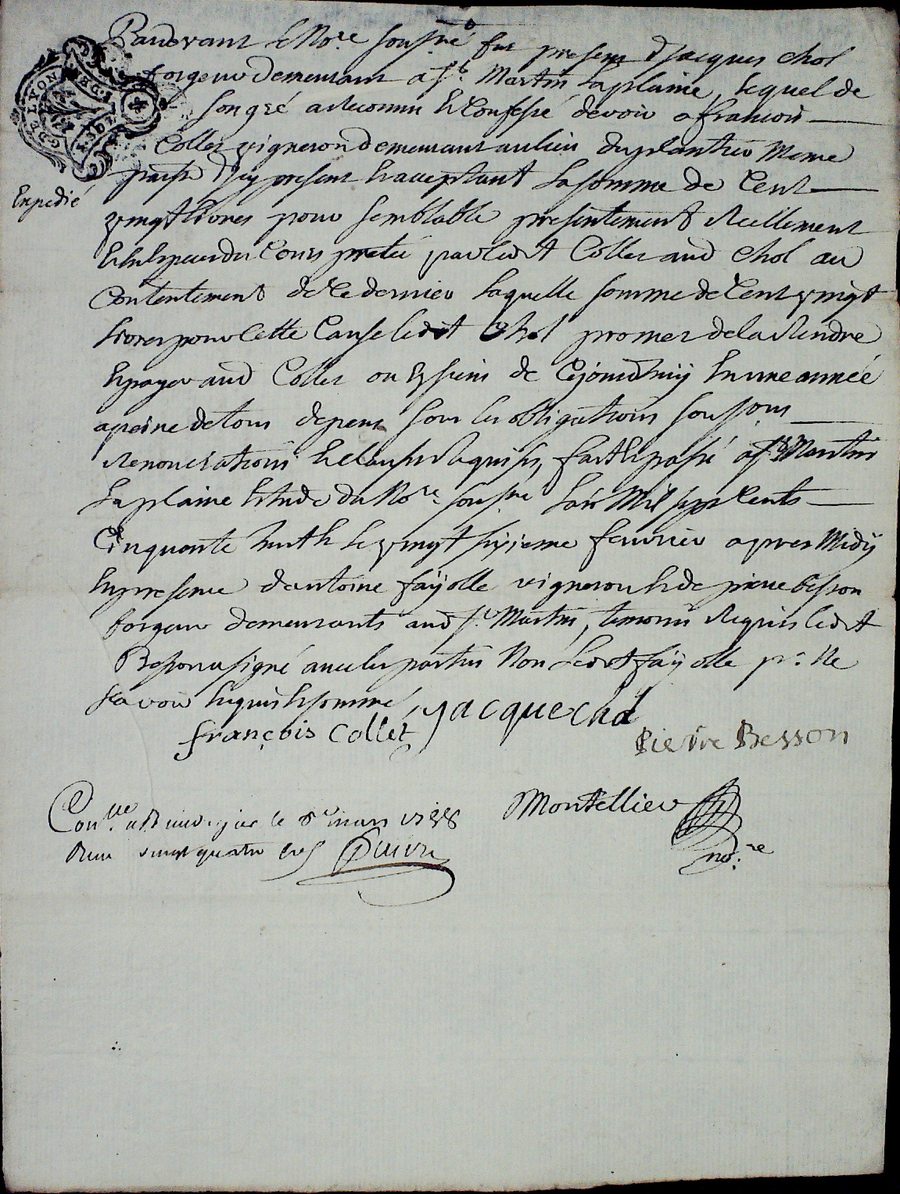 Pardevant le No.re soussné fut present Sr jacques chol
forgeur demeurant a St. Martin laplaine, lequel de
son gré a reconnu et Confessé devoir a francois
Collet vigneron demeurant au lieu du plantier meme
paroisse icy present et acceptant la somme de Cent
vingt livres pour semblable presentement reellement
et en especes de Cours pretée par ledit Collet aud chol au
Contentement de ce dernier laquelle somme de Cent vingt
livres pour cette Cause ledit Chol promet de la rendre
et payer aud Collet ou es siens de cejourdhuy en une année
a peine de tous depens sous les obligations soumissions
renonciations et clauses requises, fait et passé a St Martin
laplaine Etude du No.re soussné lan Mil sept Cents
Cinquante huit le vingt sixieme fevrier apres Midy
en presence d'antoine fayolle vigneron et de pierre besson
forgeur demeurants aud St. Martin, temoins requis ledit
Besson a signé avec les parties Non ledit fayolle pr. Ne
scavoir enquis et sommé,
françois Collet jacque chol
Pierre Besson
Montellier
no.re
Con.lle a Rivedegier le 8e mars 1758
Reçu vingt quatre sols
Expedié
G DE LYON